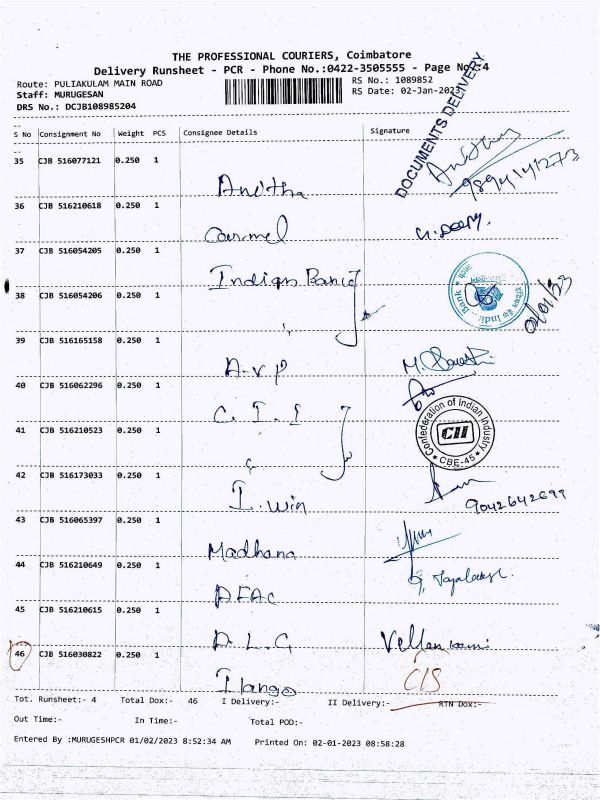 THE PROFESSIONAL COURIERS, Coimbatore
Delivery Runsheet - PCR - Phone No.:0422-3505555 - Page No.:4
Route: PULIAKULAM MAIN ROAD
RS No.: 1089852
Staff: MURUGESAN
RS Date: 02-Jan-2023
DRS No.: DCJB108985204
DOCUMENTS DELIVERY
S No Consignment No Weight PCS Consignee Details Signature
35 CJB 516077121 0.250 1
Anitha 9894141273
36 CJB 516210618 0.250 1
Carmel
37 CJB 516054205 0.250 1
Indian Bank
38 CJB 516054206 0.250 1
Bank Indian
02/01/23
39 CJB 516165158 0.250 1
A.V.P
40 CJB 516062296 0.250 1
C.I.I
41 CJB 516210523 0.250 1
Confederation of Indian Industry
CII
CBE-45
42 CJB 516173033 0.250 1
I.win 9042642699
43 CJB 516065397 0.250 1
Madhana
44 CJB 516210649 0.250 1
45 CJB 516210615 0.250 1
46 CJB 516030822 0.250 1
Ilango C/S
Tot. Runsheet:- 4 Total Dox:- 46 I Delivery:- II Delivery:- RTN Dox:-
Out Time:- In Time:- Total POD:-
Entered By :MURUGESHPCR 01/02/2023 8:52:34 AM Printed On: 02-01-2023 08:58:28